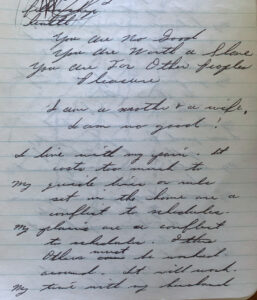 You Are No Good
You Are Worth a Slave
You Are For Other Peoples
Pleasure
I am a mother & a wife,
I am no good!
I live with my pain. It
costs too much to
My guide line or rules
set in the home are a
conflict to schedules.
My plans are a conflict
to schedules.
Others must be worked
around. It will work.
My time with my husband